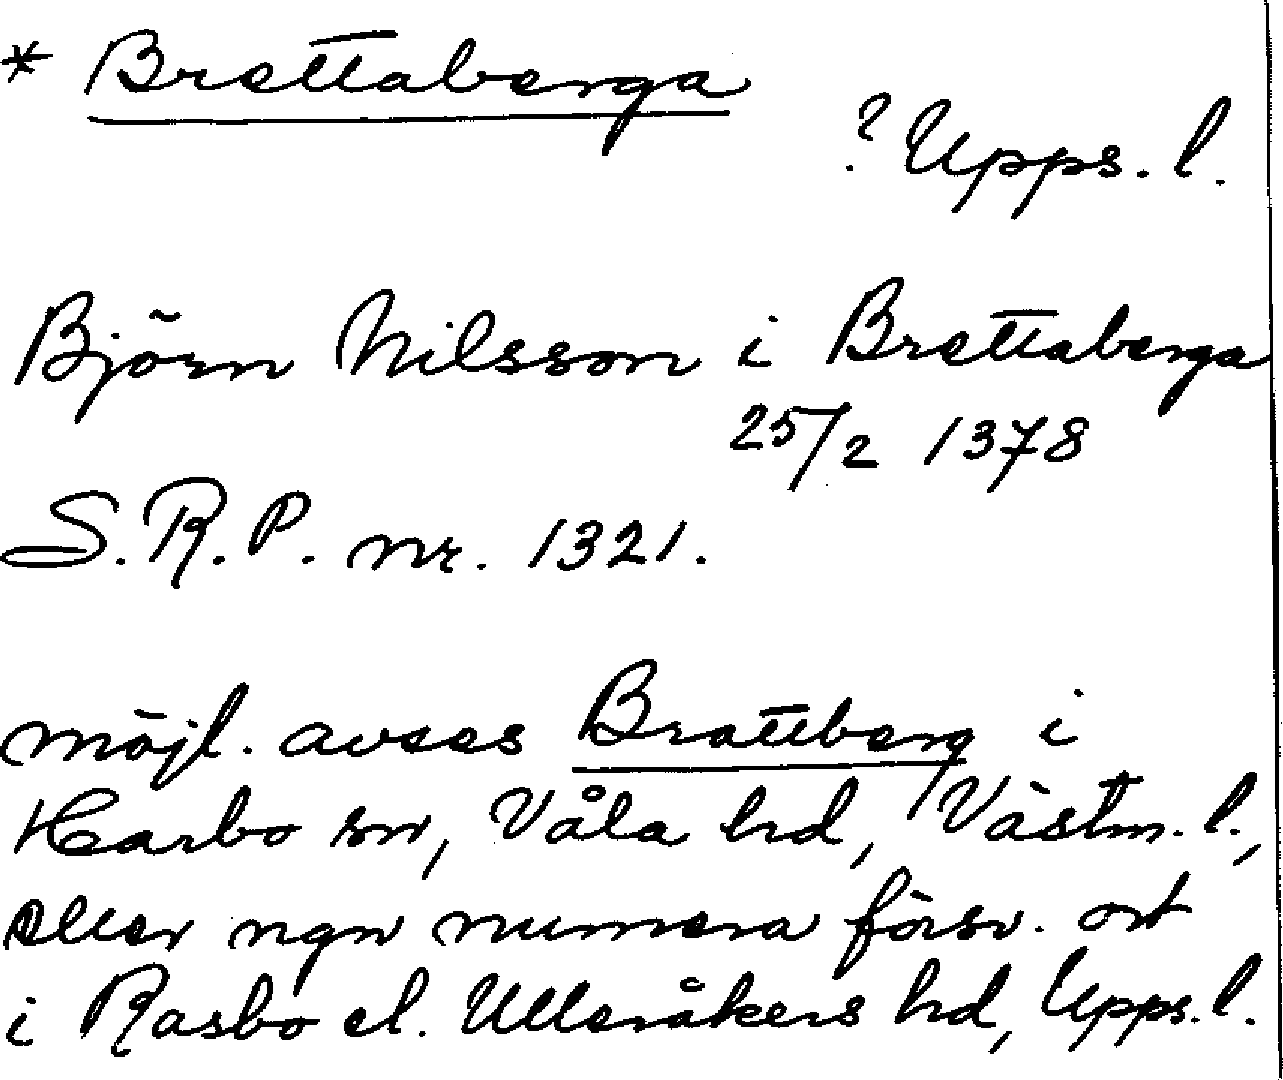 * Brettaberga
? Upps. l.
Björn Nilsson i Brettaberga
25/2 1378
S.R.P. nr. 1321.
möjl. avses Brattberg i
Harbo sn, Våla hd, Västm. l.,
eller ngn numera försv. ort
i Rasbo el. Ulleråkers hd, Upps. l.